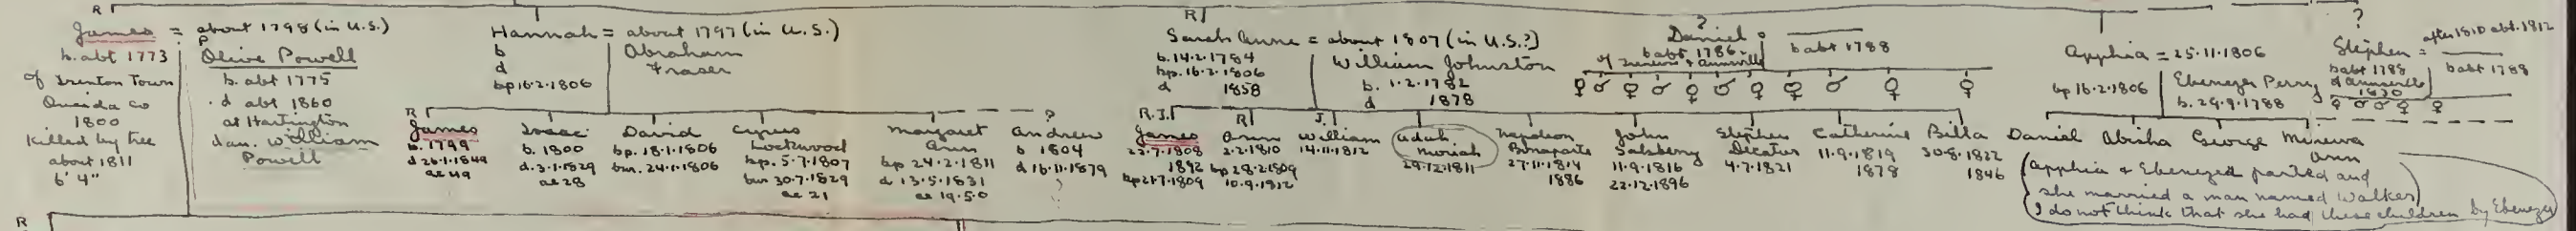 R
James = about 1798 (in U.S.)
b. abt 1773
of Trenton Town
Oneida co
1800
killed by tree
about 1811
6' 4"
P
Olive Powell
b. abt 1775
d abt 1860
at Hartington
dau. William
Powell
Hannah = about 1797 (in U.S.)
b
d
bp 16.2.1806
Abraham
Fraser
R
Sarah Anne = about 1807 (in U.S.?)
b. 14.2.1784
bp. 16.2.1806
d 1858
William Johnston
b. 1.2.1782
d 1878
?
Daniel =
b abt 1786
b abt 1788
♀ ♂ ♀ ♂ ♀ ♂ ♀ ♀ ♂ ♀ ♀
Apphia = 25.11.1806
bp 16.2.1806
Ebenezer Perry
b. 29.9.1788
?
Stephen = after 1810 abt. 1812
b abt 1788
1830
b abt 1788
♀ ♂ ♂ ♀ ♀
R
James
b. 1799
d 26.1.1849
ae 49
Isaac
b. 1800
d. 3.1.1829
ae 28
David
bp. 18.1.1806
bur. 24.1.1806
Cyrus
Lockwood
bp. 5.7.1807
bur 30.7.1829
ae 21
Margaret
Ann
bp 24.2.1811
d 13.5.1831
ae 19.5.0
?
Andrew
b 1804
d 16.11.1879
?
R.J.
James
22.7.1808
1892
bp 21.7.1809
R
Ann
2.2.1810
bp 28.2.1809
10.9.1912
J.
William
14.11.1812
Adah
Moriah
29.12.1811
Napoleon
Bonaparte
27.11.1814
1886
John
Salsberry
11.9.1816
22.12.1896
Stephen
Decatur
4.7.1821
Catherine
11.9.1819
1878
Billa
30.8.1822
1846
Daniel Abisha George Minerva
Ann
(Apphia & Ebenezer parted and
she married a man named Walker)
I do not think that she had these children by Ebenezer
R